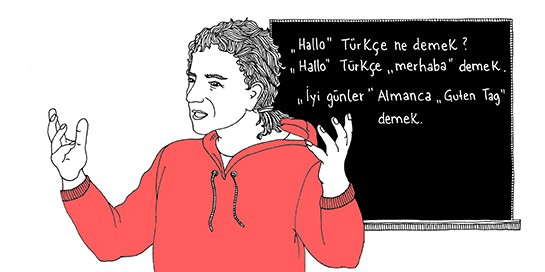 „Hallo" Türkçe ne demek?
„Hallo" Türkçe „merhaba" demek.
„İyi günler" Almanca „Guten Tag"
demek.